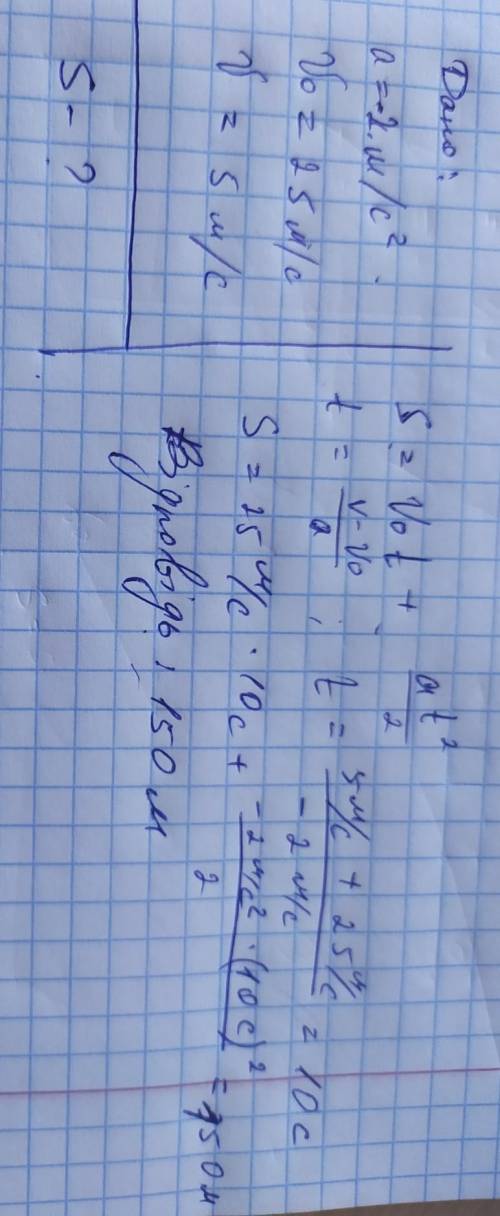 Дано:
a = -2 м/с²
V₀ = 25 м/с
V = 5 м/с
S - ?
S = V₀t + at²/2
t = (v - v₀)/a ; t = (5 м/с + 25 м/с)/(-2 м/с) = 10 с
S = 25 м/с · 10с + (-2 м/с² · (10 с)²)/2 = 150 м
Відповідь: 150 м